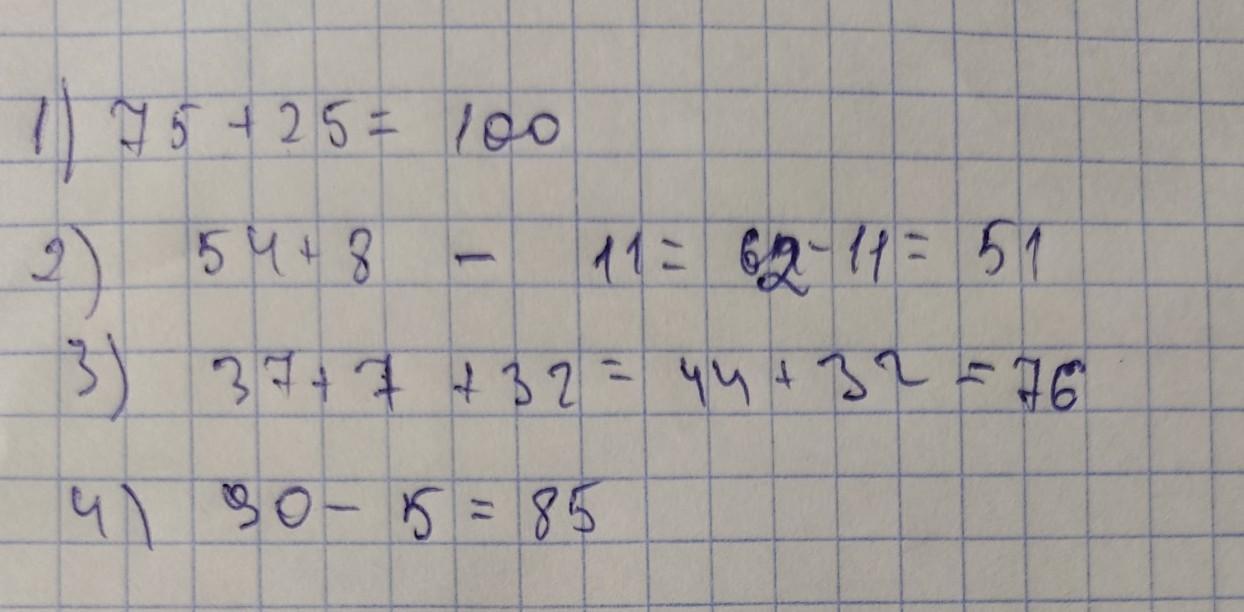 1) 75 + 25 = 100
2) 54 + 8 - 11 = 62 - 11 = 51
3) 37 + 7 + 32 = 44 + 32 = 76
4) 90 - 5 = 85